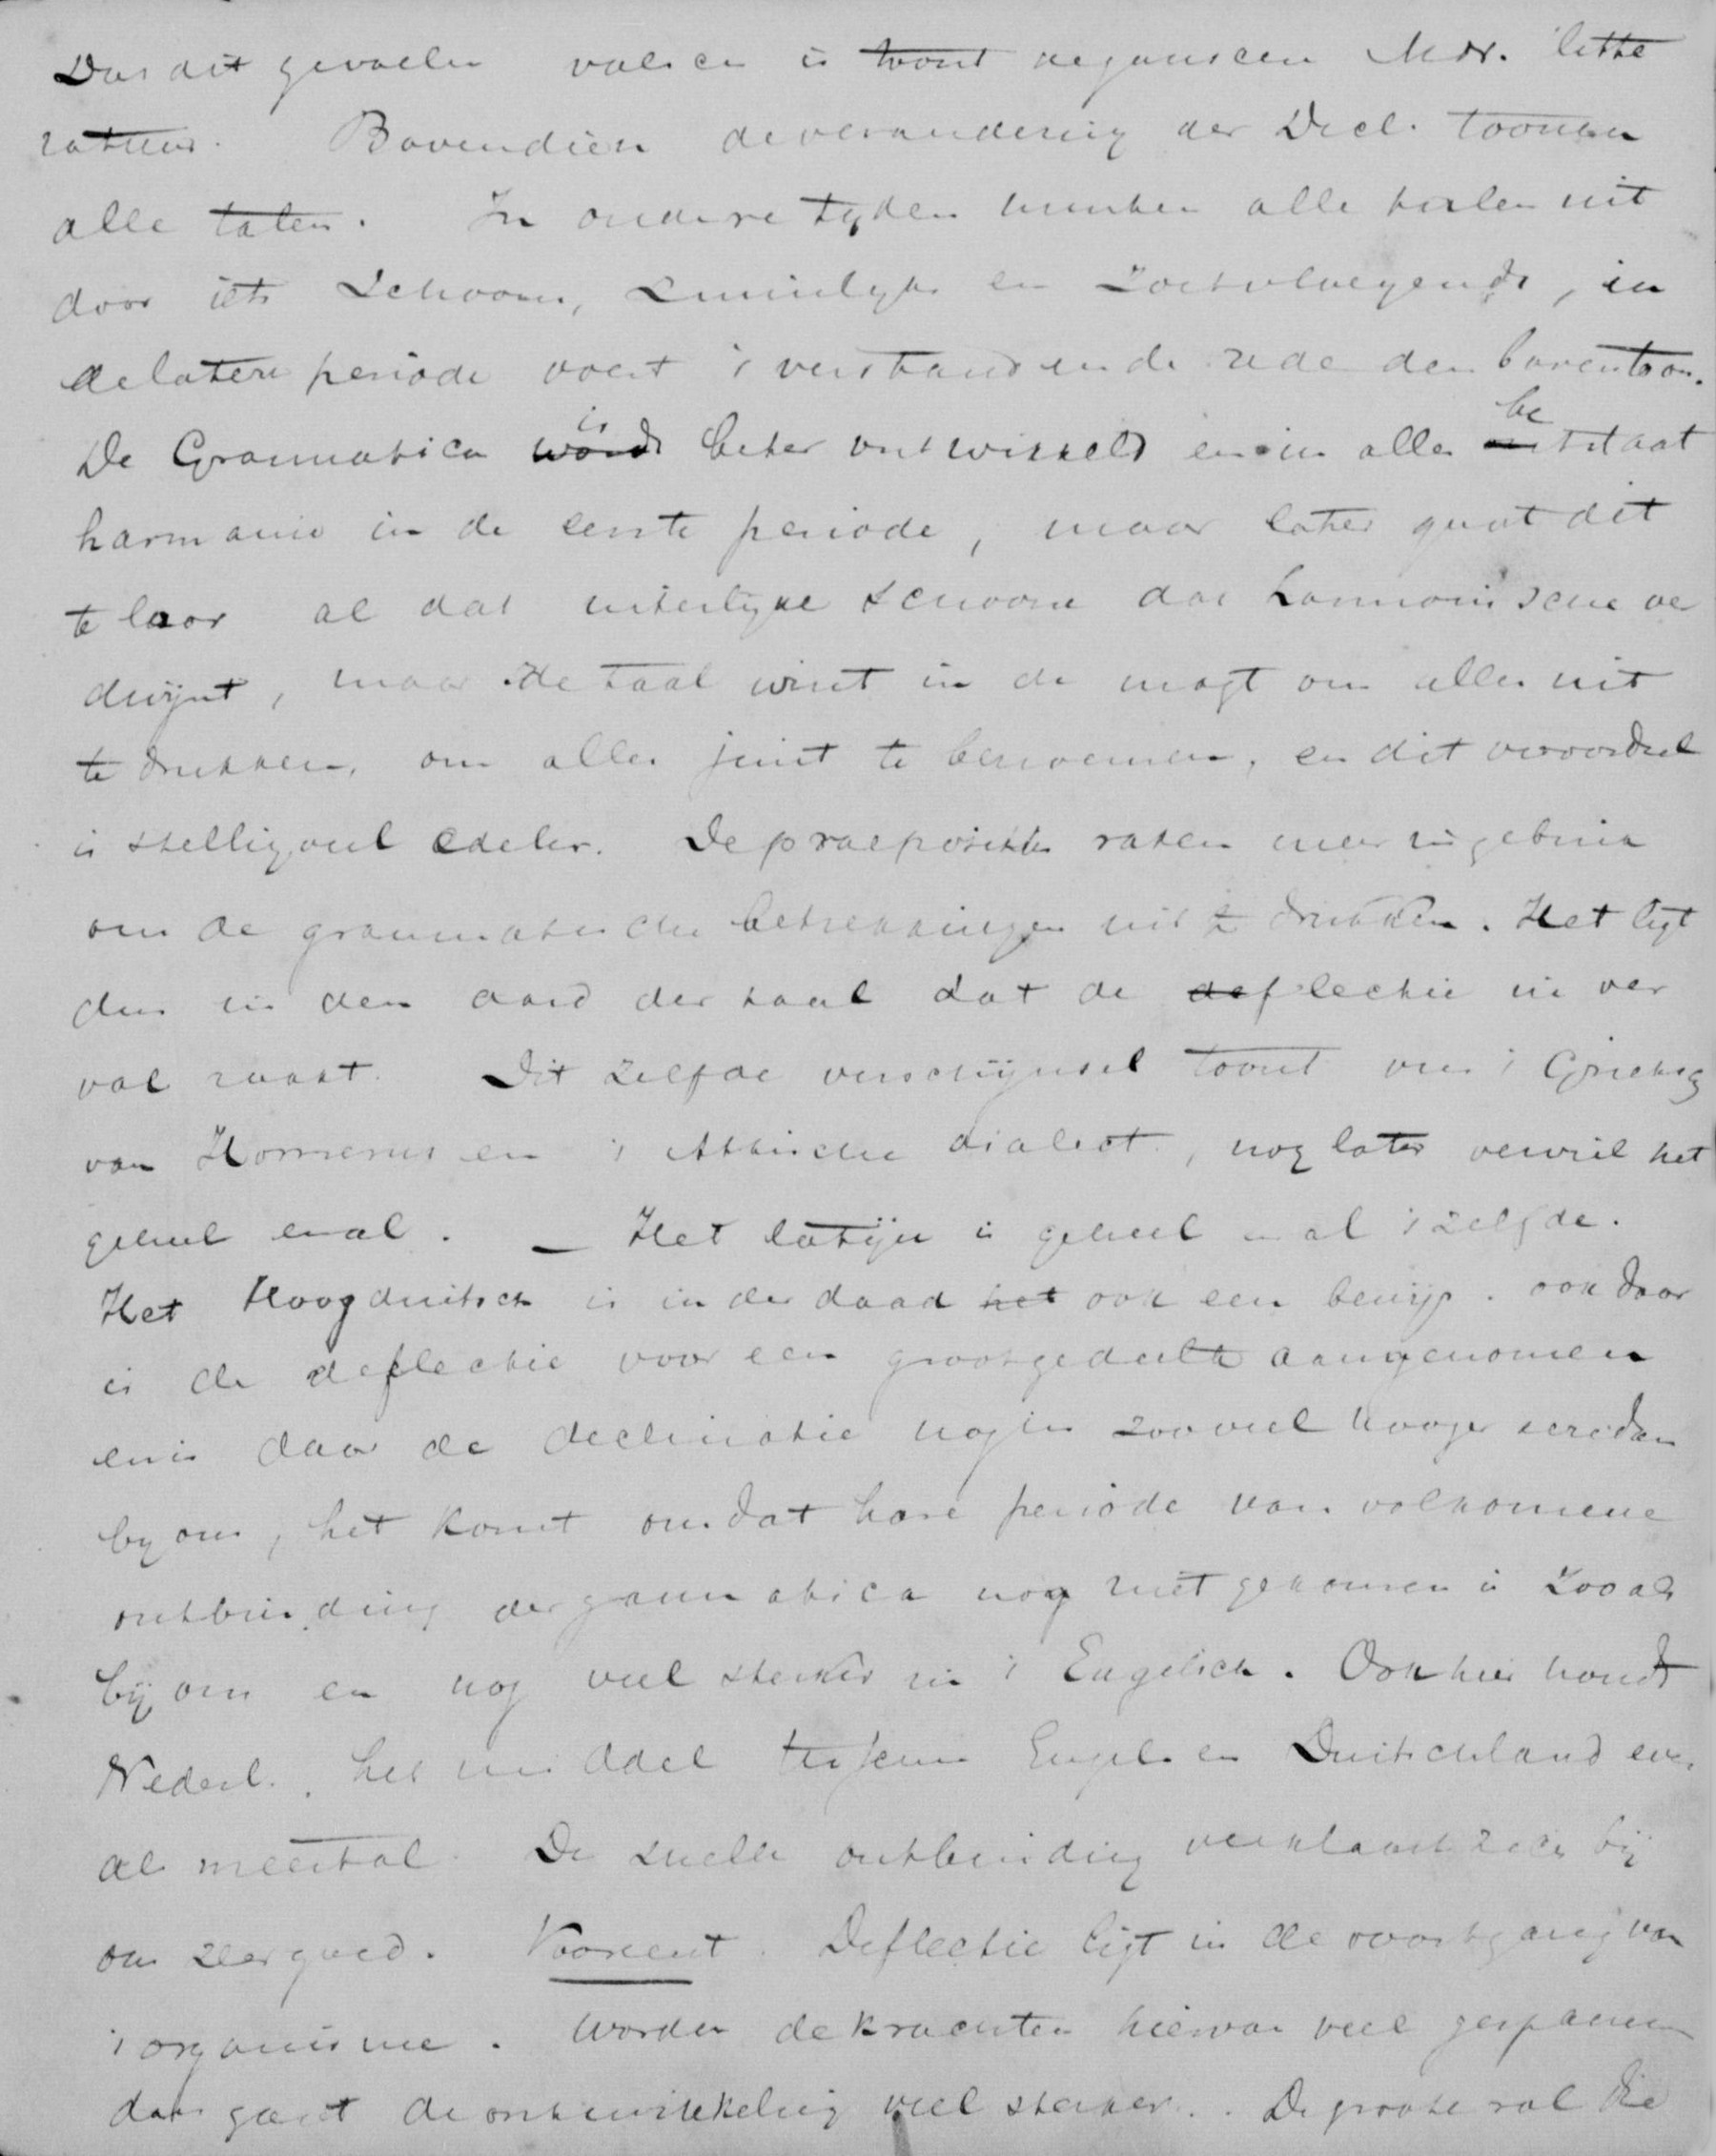 Dat dit gevoelen valsch is toont de gansche Mdr. litte
ratuur. Bovendien de verandering der Decl. toonen
alle talen. In oudere tyden munten alle talen uit
door iets Schoons, Zinnelyks en Zoetvloeyends, in
de latere periode voert 't verstand en de rede den boventoon.
De Grammatica is beter ontwikkeld en in alles bestaat
harmonie in de eerste periode, maar later gaat dit
te loor al dat uiterlyke schoone dat harmonische ver
dwijnt, maar de taal wint in de magt om alles uit
te drukken, om alles juist te benoemen, en dit voordeel
is stellig veel edeler. De praepositie raken meer in gebruik
om de grammatische betrekkingen uit te drukken. Het ligt
dus in den aard der taal dat de deflectie in ver
val raakt. Dit zelfde verschijnsel toont ons 't Grieksch
van Homerus en 't Attische dialect, nog later verviel het
geheel en al. _ Het latijn is geheel en al 't zelfde.
Het Hoogduitsch is in der daad het ook een bewijs. ook daar
is de deflectie voor een groot gedeelte aangenomen
en is daar de declinatie nog zooveel hooger dan
by ons, het komt omdat hare periode van volkomene
ontbinding der grammatica nog niet gekomen is zooals
bij ons en nog veel sterker in 't Engelsch. Ook hier houdt
Nederl. het middel tusschen Engel. en Duitschland even
als meestal. De snelle ontbinding verklaart zich bij
ons zeer goed. Vooreerst. Deflectie ligt in de voortgang van
't organisme. Worden de krachten hiervan veel gespannen
dan gaat de ontwikkeling veel sterker. De groote rol die